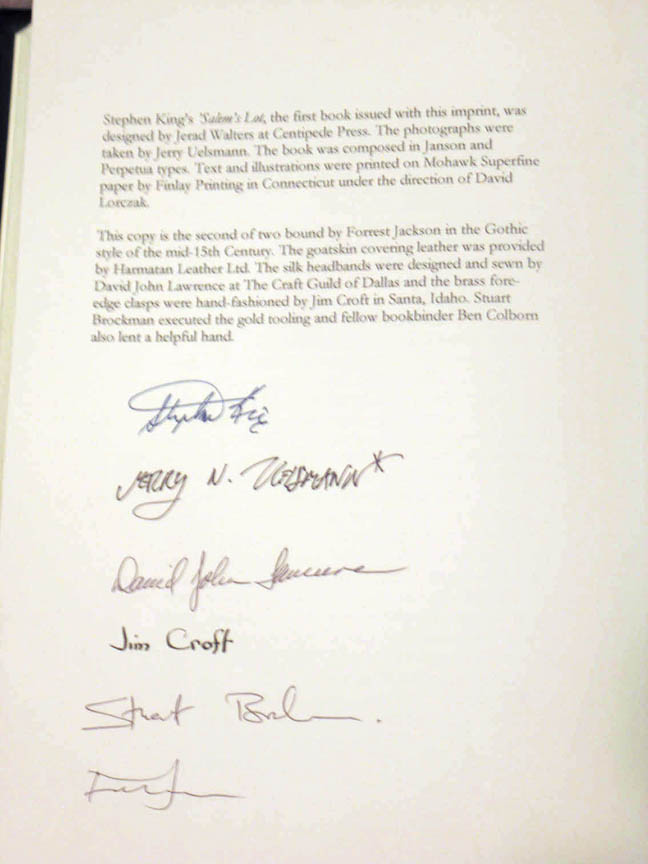 Stephen King's 'Salem's Lot, the first book issued with this imprint, was
designed by Jerad Walters at Centipede Press. The photographs were
taken by Jerry Uelsmann. The book was composed in Janson and
Perpetua types. Text and illustrations were printed on Mohawk Superfine
paper by Finlay Printing in Connecticut under the direction of David
Lorczak.
This copy is the second of two bound by Forrest Jackson in the Gothic
style of the mid-15th Century. The goatskin covering leather was provided
by Harmatan Leather Ltd. The silk headbands were designed and sewn by
David John Lawrence at The Craft Guild of Dallas and the brass fore-
edge clasps were hand-fashioned by Jim Croft in Santa, Idaho. Stuart
Brockman executed the gold tooling and fellow bookbinder Ben Colborn
also lent a helpful hand.
Stephen King
JERRY N. UELSMANN*
David John Lawrence
Jim Croft
Stuart Brockman.